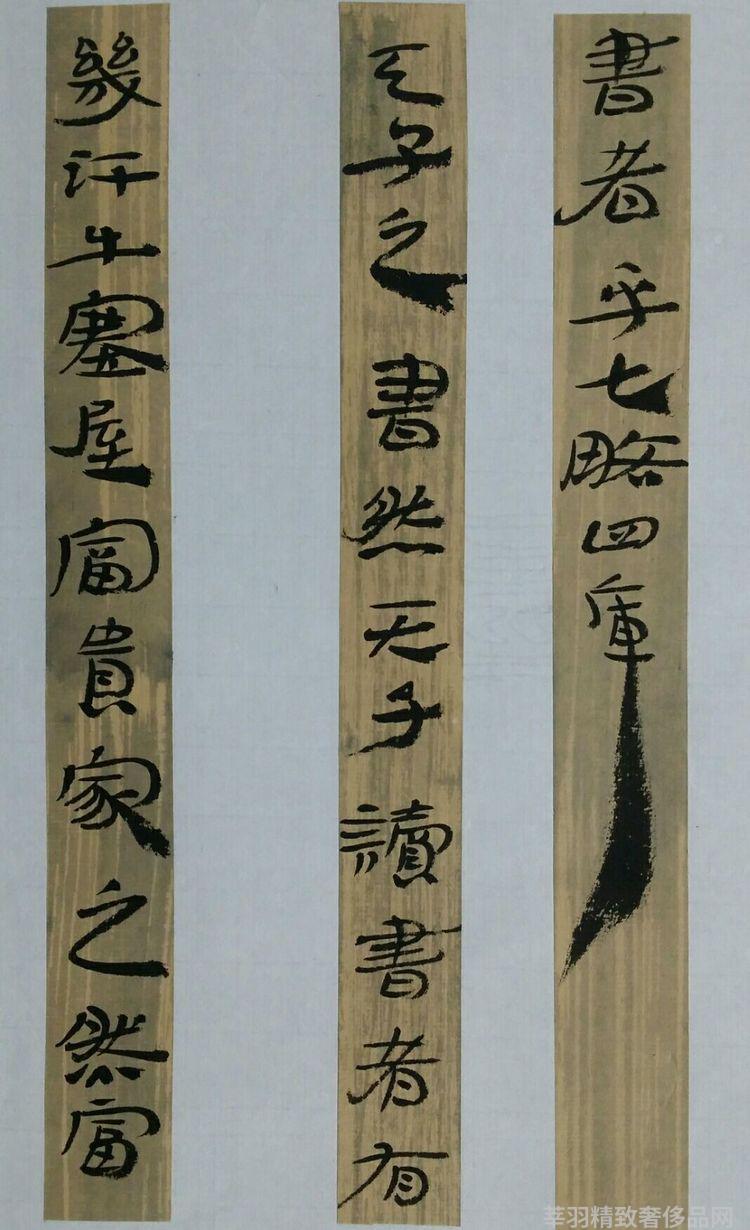 書者乎七略四庫
天子之書然天子讀書者有
幾汗牛塞屋富貴家之然富
莘羽精致奢侈品网